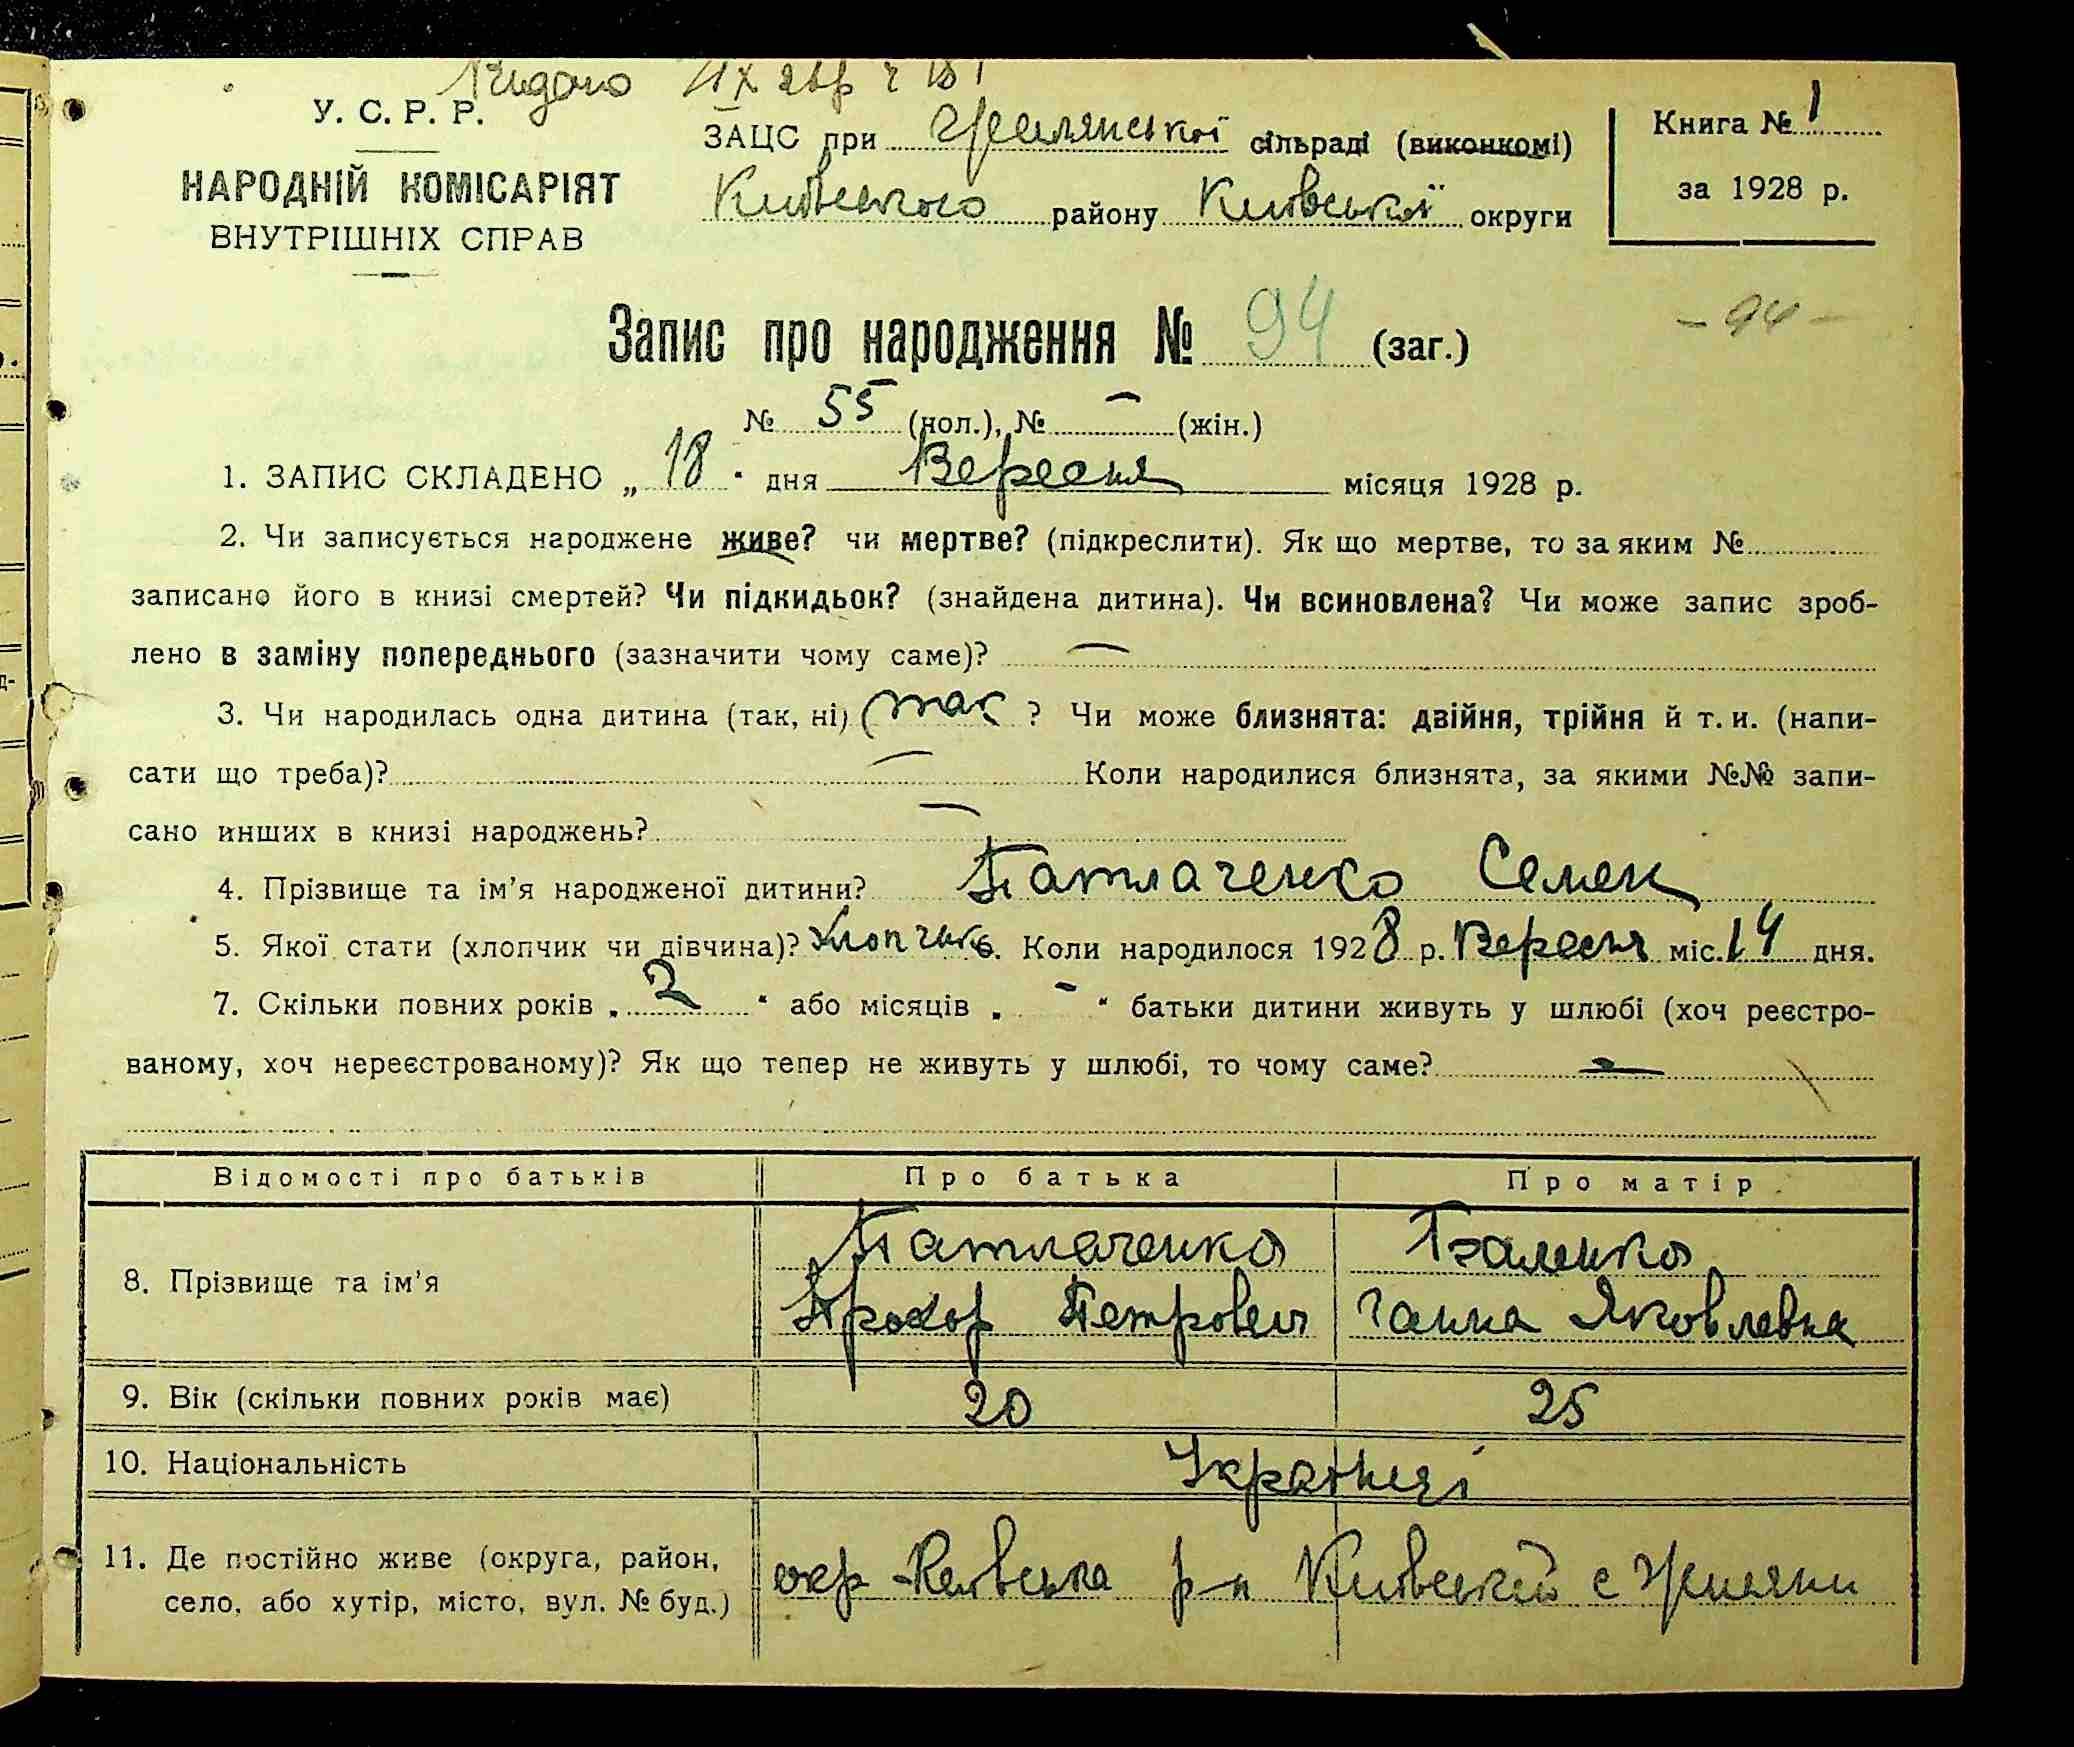 Видано
У. С. Р. Р.
НАРОДНІЙ КОМІСАРІЯТ
ВНУТРІШНІХ СПРАВ
ЗАЦС при Жилянської сільраді (виконкомі)
Київського району Київської округи
Книга № 1
за 1928 р.
Запис про народження № 94 (заг.)
- 94 -
№ 55 (чол.), № — (жін.)
1. ЗАПИС СКЛАДЕНО „ 18 " дня Вересня місяця 1928 р.
2. Чи записується народжене живе? чи мертве? (підкреслити). Як що мертве, то за яким №
записано його в книзі смертей? Чи підкидьок? (знайдена дитина). Чи всиновлена? Чи може запис зроб-
лено в заміну попереднього (зазначити чому саме)? —
3. Чи народилась одна дитина (так, ні) (так ? Чи може близнята: двійня, трійня й т. и. (напи-
сати що треба)? — Коли народилися близнята, за якими №№ запи-
сано инших в книзі народжень? —
4. Прізвище та ім'я народженої дитини? Патлаченко Семен
5. Якої стати (хлопчик чи дівчина)? Хлопчик 6. Коли народилося 1928 р. Вересня міс. 14 дня.
7. Скільки повних років „ 2 " або місяців „ - " батьки дитини живуть у шлюбі (хоч реєстро-
ваному, хоч нереєстрованому)? Як що тепер не живуть у шлюбі, то чому саме? —
Відомості про батьків Про батька Про матір
8. Прізвище та ім'я Патлаченко
Прохор Петрович Ганна Яковлевна
9. Вік (скільки повних років має) 20 25
10. Національність Українці
11. Де постійно живе (округа, район,
село, або хутір, місто, вул. № буд.) окр Київська р-н Київський с Жиляни